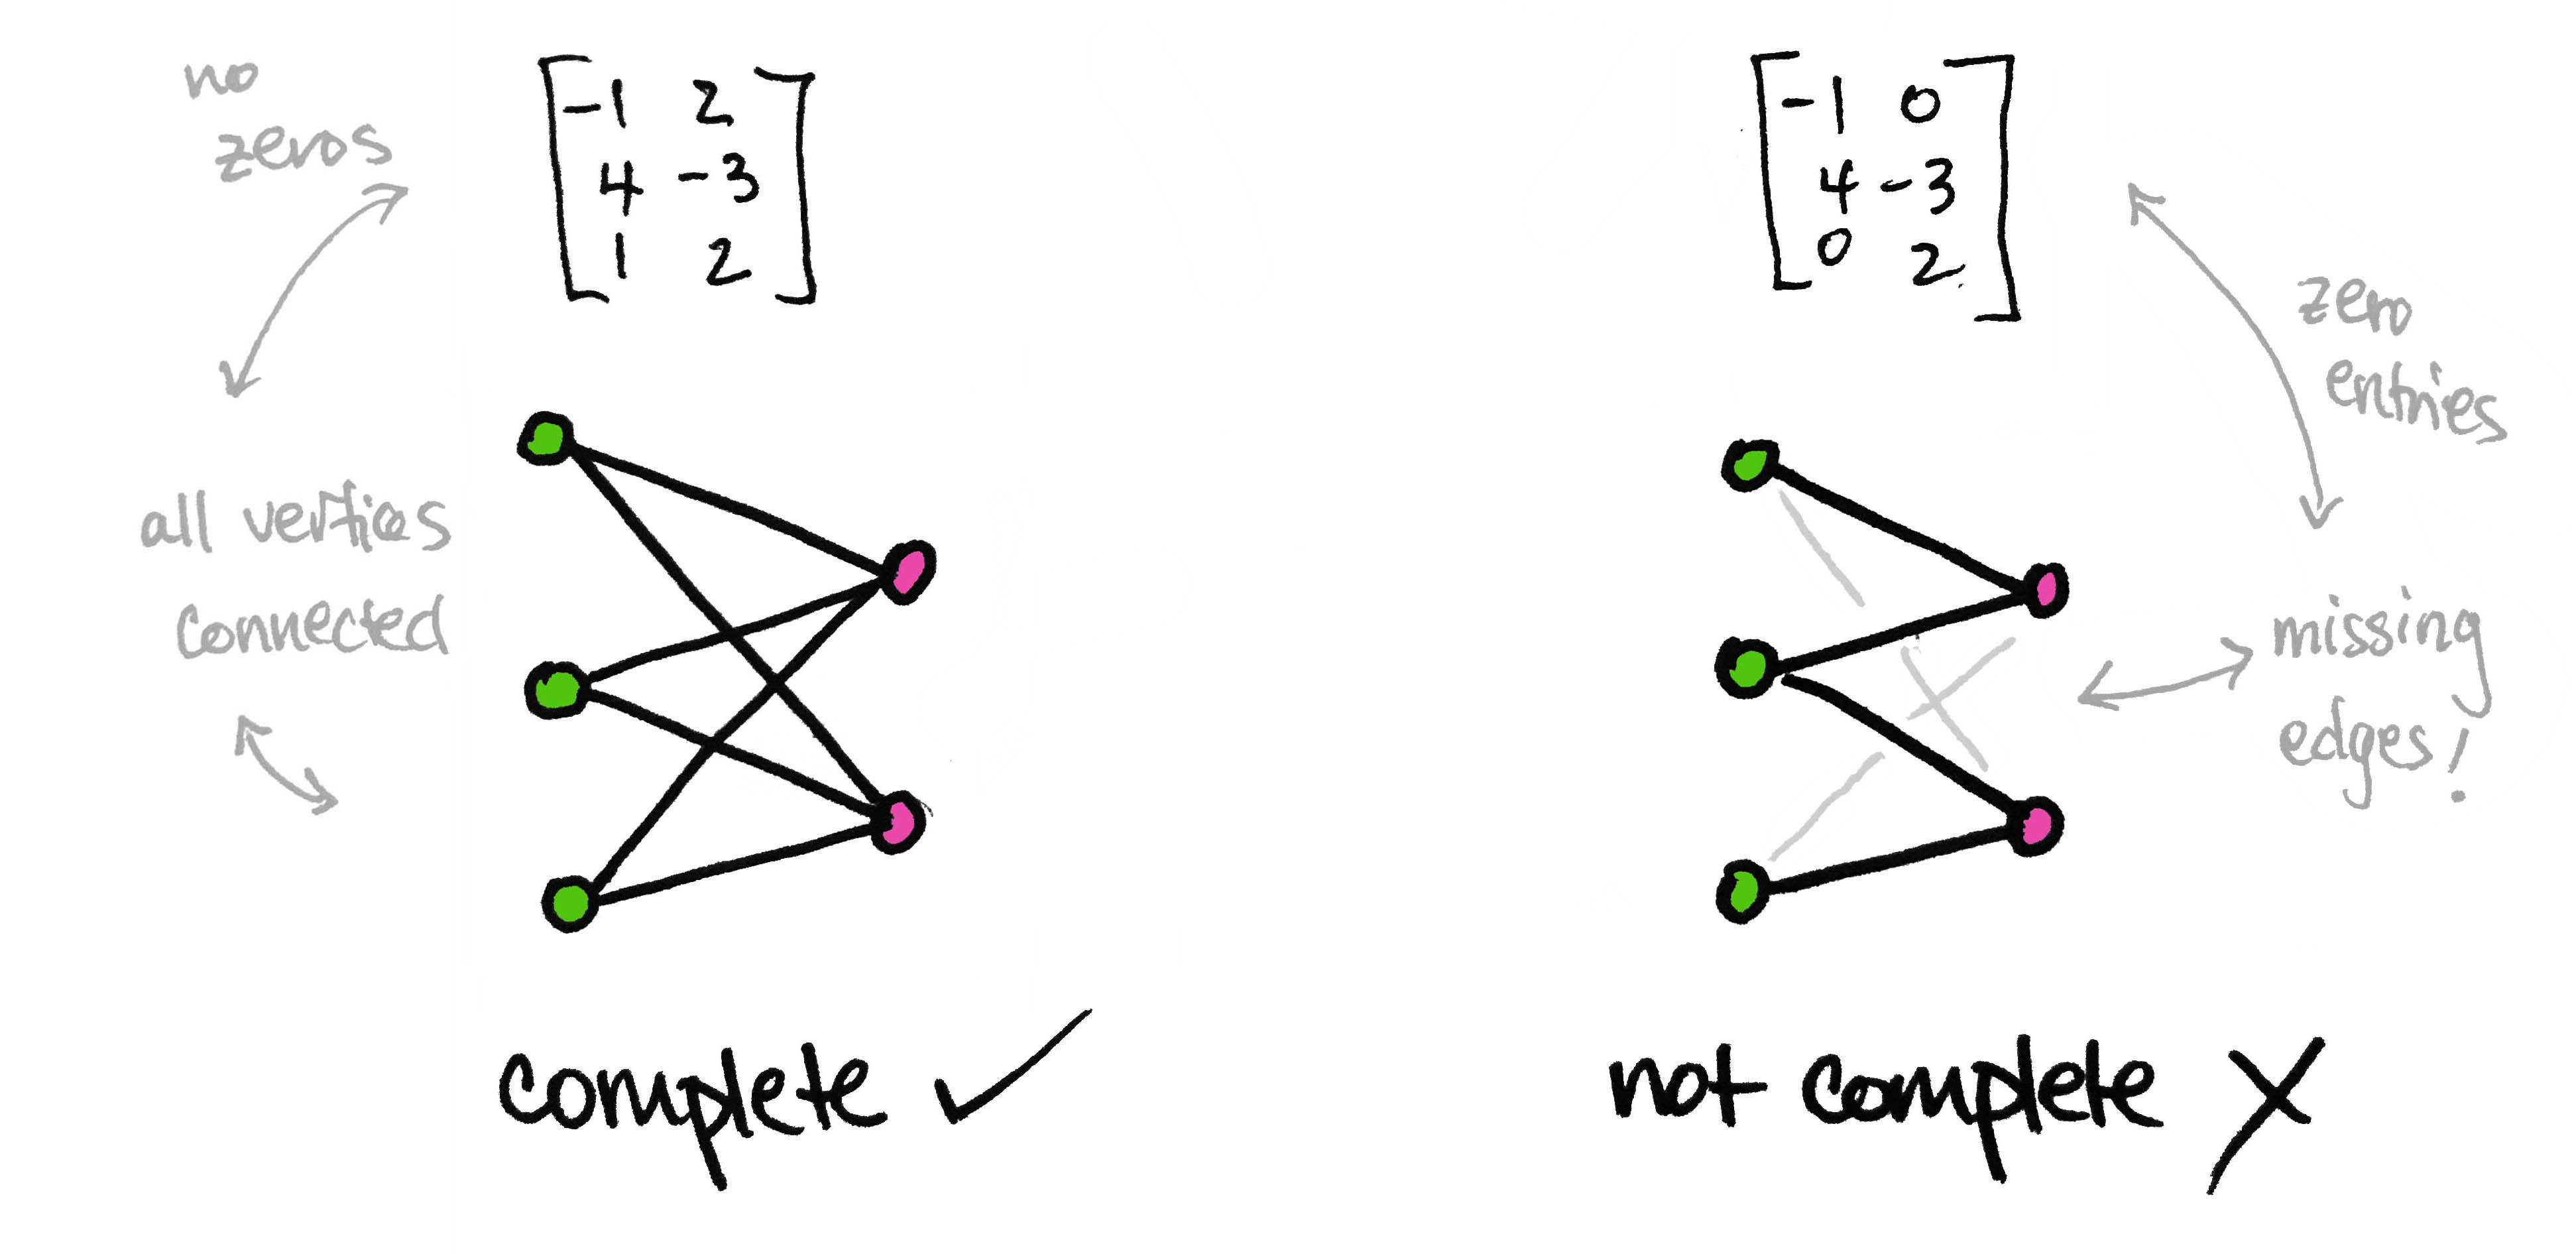 no
zeros
-1 2
4 -3
1 2
all vertices
connected
complete ✓
-1 0
4 -3
0 2
zero
entries
missing
edges!
not complete X